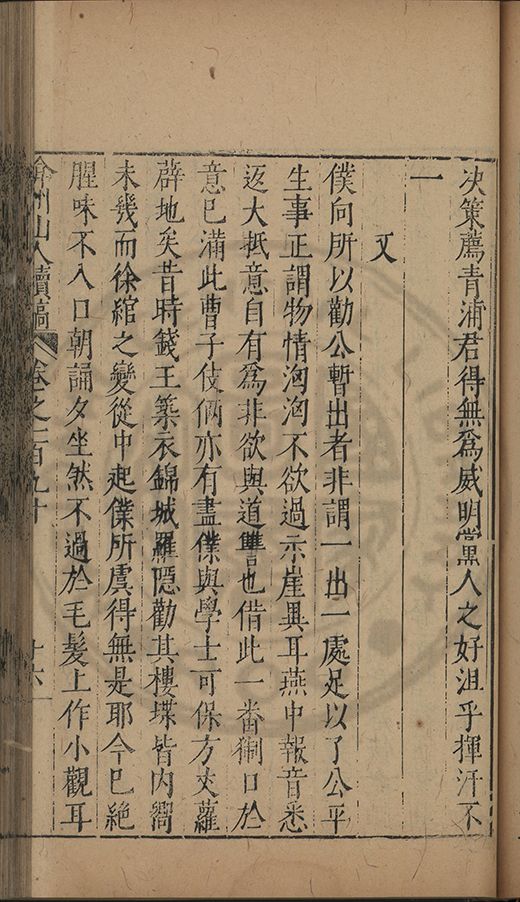 决策薦青浦君得無爲威明黨人之好沮乎揮汗不
一
又
僕向所以勸公暫出者非謂一出一處足以了公平
生事正謂物情洶洶不欲過示崖異耳燕中報音悉
返大抵意自有爲非欲與道讐也借此一番猘口於
意已滿此曹子伎倆亦有盡僕與學士可保方丈蘿
薜地矣昔時錢王築衣錦城羅隱勸其樓堞皆內嚮
未幾而徐綰之變從中起僕所虞得無是耶今已絶
腥味不入口朝誦夕坐然不過於毛髮上作小觀耳
弇州山人續稿 卷之一百九十 十六